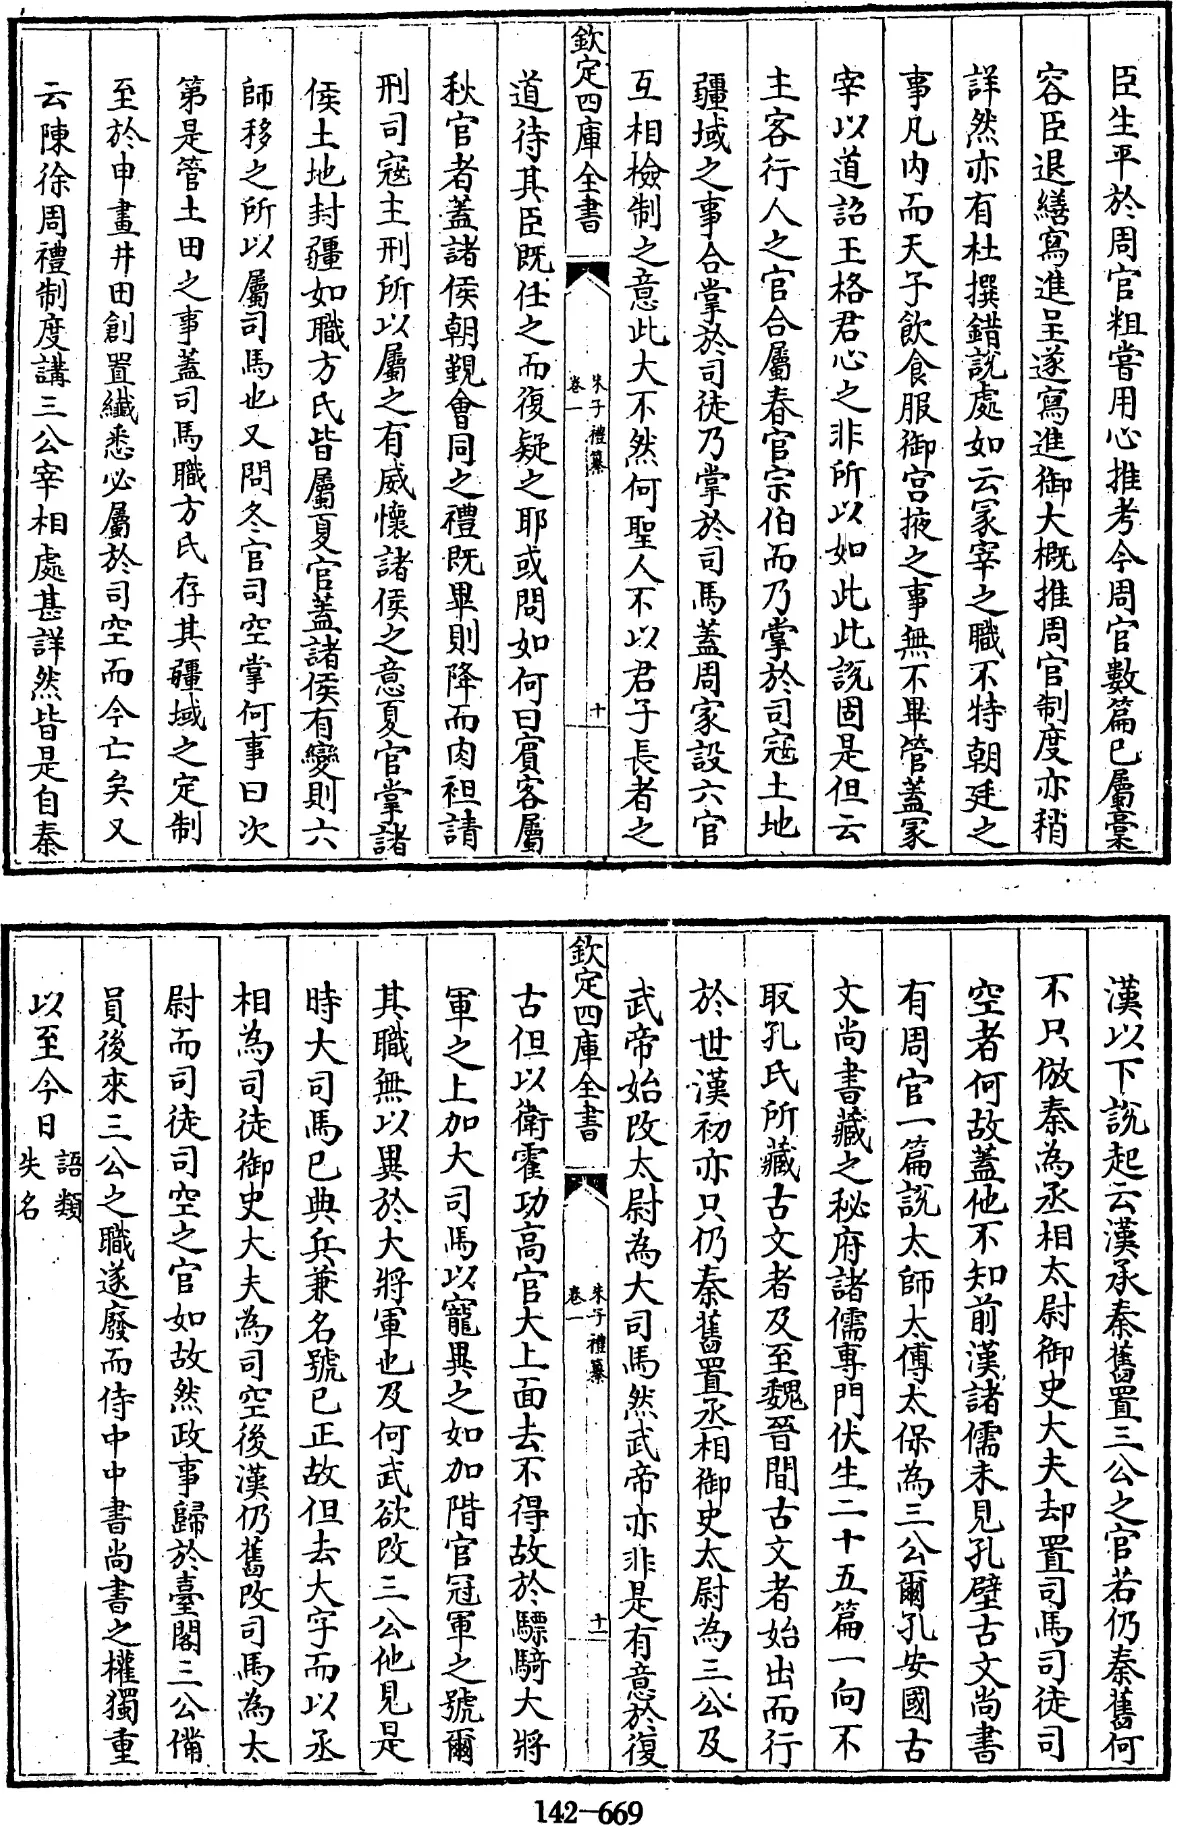 臣生平於周官粗嘗用心推考今周官數篇已屬稾
容臣退繕寫進呈遂寫進御大概推周官制度亦稍
詳然亦有杜撰錯說處如云冢宰之職不特朝廷之
事凡内而天子飲食服御宫掖之事無不畢管蓋冢
宰以道詔王格君心之非所以如此此說固是但云
主客行人之官合屬春官宗伯而乃掌於司寇土地
疆域之事合掌於司徒乃掌於司馬蓋周家設六官
互相檢制之意此大不然何聖人不以君子長者之
欽定四庫全書
朱子禮纂
卷一
十
道待其臣既任之而復疑之耶或問如何曰賓客屬
秋官者蓋諸侯朝覲會同之禮既畢則降而肉袒請
刑司寇主刑所以屬之有威懷諸侯之意夏官掌諸
侯土地封疆如職方氏皆屬夏官蓋諸侯有變則六
師移之所以屬司馬也又問冬官司空掌何事曰次
第是管土田之事蓋司馬職方氏存其疆域之定制
至於申畫井田創置纎悉必屬於司空而今亡矣又
云陳徐周禮制度講三公宰相處甚詳然皆是自秦
漢以下說起云漢承秦舊置三公之官若仍秦舊何
不只倣秦為丞相太尉御史大夫却置司馬司徒司
空者何故蓋他不知前漢諸儒未見孔壁古文尚書
有周官一篇說太師太傅太保為三公爾孔安國古
文尚書藏之秘府諸儒專門伏生二十五篇一向不
取孔氏所藏古文者及至魏晉間古文者始出而行
於世漢初亦只仍秦舊置丞相御史太尉為三公及
武帝始改太尉為大司馬然武帝亦非是有意於復
欽定四庫全書
朱子禮纂
卷一
十一
古但以衛霍功高官大上面去不得故於驃騎大將
軍之上加大司馬以寵異之如加階官冠軍之號爾
其職無以異於大將軍也及何武欲改三公他見是
時大司馬已典兵兼名號已正故但去大字而以丞
相為司徒御史大夫為司空後漢仍舊改司馬為太
尉而司徒司空之官如故然政事歸於臺閣三公備
員後來三公之職遂廢而侍中中書尚書之權獨重
以至今日 語類
失名
142-669